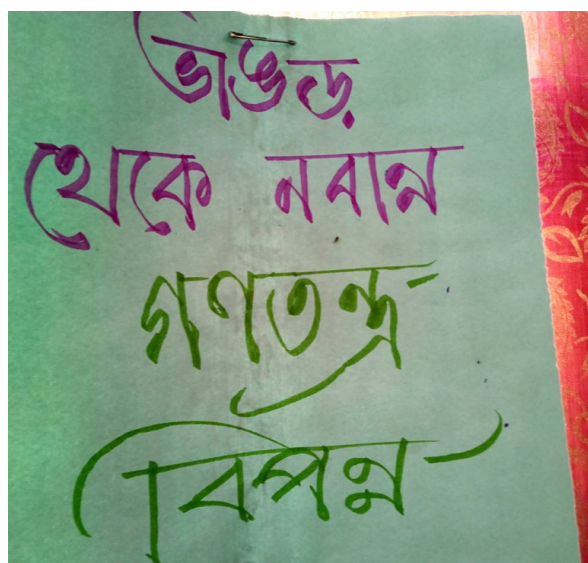 ভাঙড়
থেকে নবান্ন
গণতন্ত্র
বিপন্ন